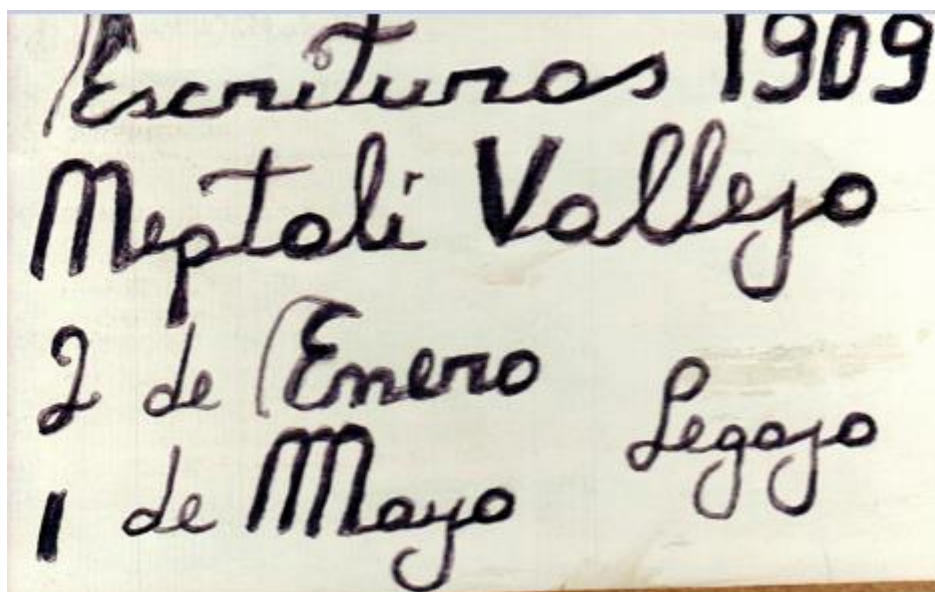 Escrituras 1909
Neptali Vallejo
2 de Enero
1 de Mayo
Legajo